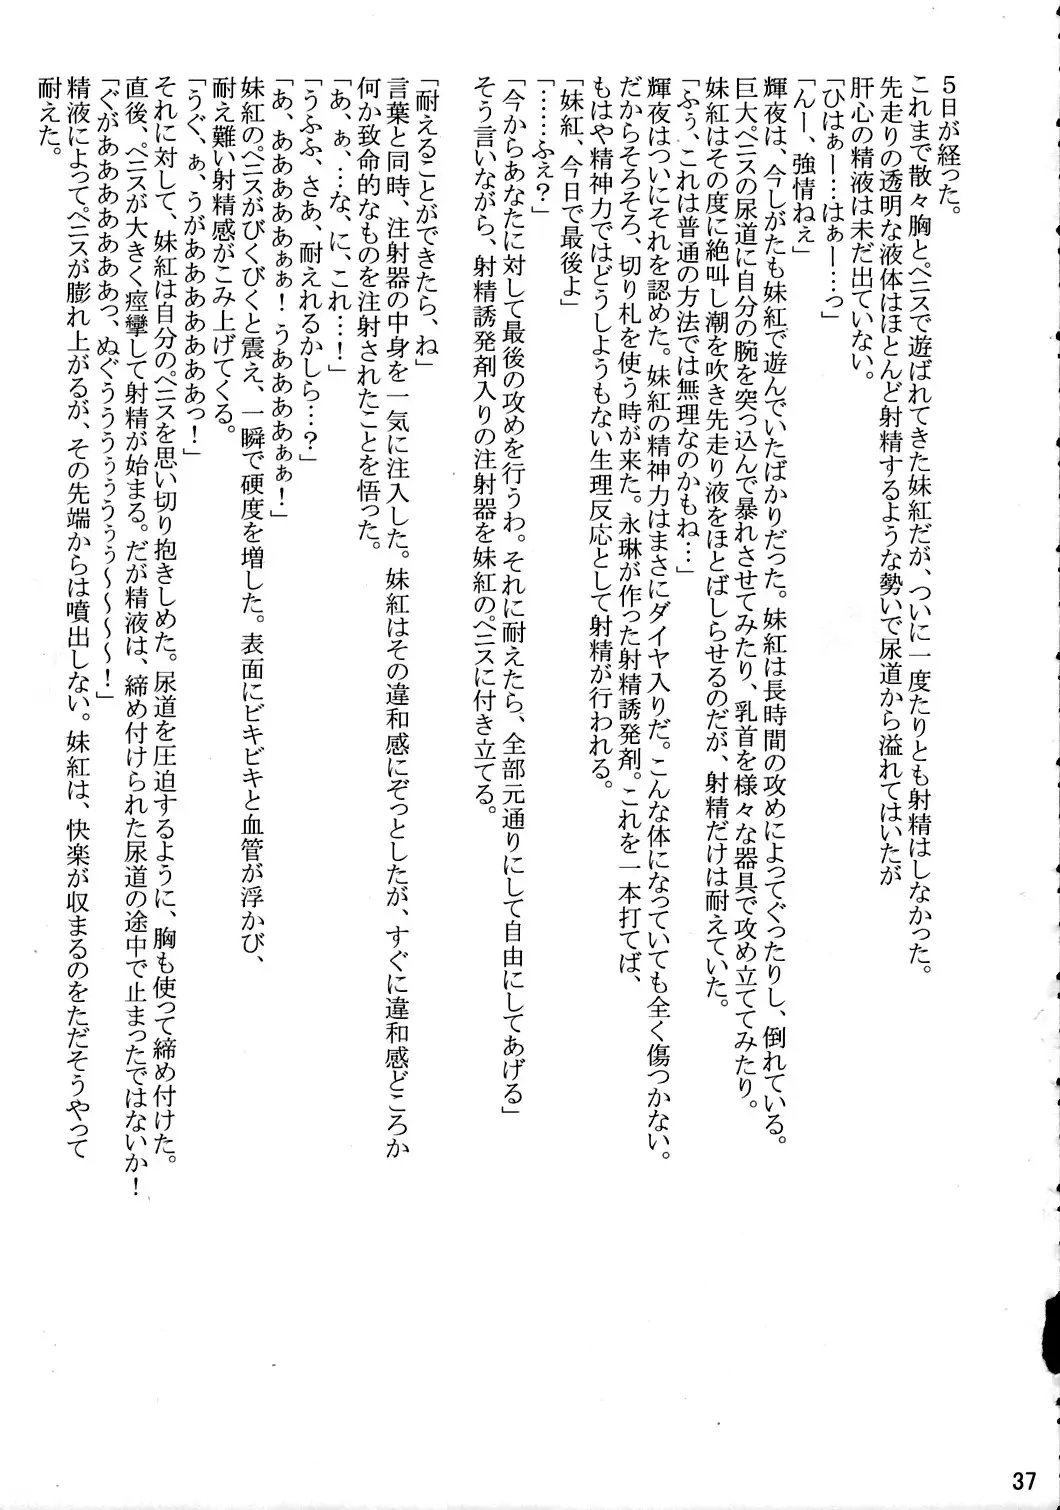 ５日が経った。
これまで散々胸とペニスで遊ばれてきた妹紅だが、ついに一度たりとも射精はしなかった。
先走りの透明な液体はほとんど射精するような勢いで尿道から溢れてはいたが
肝心の精液は未だ出ていない。
「ひはぁー…はぁー…っ」
「んー、強情ねぇ」
輝夜は、今しがたも妹紅で遊んでいたばかりだった。妹紅は長時間の攻めによってぐったりし、倒れている。
巨大ペニスの尿道に自分の腕を突っ込んで暴れさせてみたり、乳首を様々な器具で攻め立ててみたり。
妹紅はその度に絶叫し潮を吹き先走り液をほとばしらせるのだが、射精だけは耐えていた。
「ふぅ、これは普通の方法では無理なのかもね…」
輝夜はついにそれを認めた。妹紅の精神力はまさにダイヤ入りだ。こんな体になっていても全く傷つかない。
だからそろそろ、切り札を使う時が来た。永琳が作った射精誘発剤。これを一本打てば、
もはや精神力ではどうしようもない生理反応として射精が行われる。
「妹紅、今日で最後よ」
「……ふぇ？」
「今からあなたに対して最後の攻めを行うわ。それに耐えたら、全部元通りにして自由にしてあげる」
そう言いながら、射精誘発剤入りの注射器を妹紅のペニスに付き立てる。
「耐えることができたら、ね」
言葉と同時、注射器の中身を一気に注入した。妹紅はその違和感にぞっとしたが、すぐに違和感どころか
何か致命的なものを注射されたことを悟った。
「あ、ぁ、…な、に、これ…！」
「うふふ、さあ、耐えれるかしら…？」
「あ、ああああああぁぁ！うああああぁぁ！」
妹紅のペニスがびくびくと震え、一瞬で硬度を増した。表面にビキビキと血管が浮かび、
耐え難い射精感がこみ上げてくる。
「うぐ、ぁ、うがああああああああっ！」
それに対して、妹紅は自分のペニスを思い切り抱きしめた。尿道を圧迫するように、胸も使って締め付けた。
直後、ペニスが大きく痙攣して射精が始まる。だが精液は、締め付けられた尿道の途中で止まったではないか！
「ぐがああああああああっ、ぬぐうううぅぅうぅぅ～～～～！」
精液によってペニスが膨れ上がるが、その先端からは噴出しない。妹紅は、快楽が収まるのをただそうやって
耐えた。
37